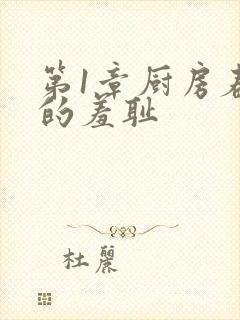 第1章厨房
的羞耻
杜麗